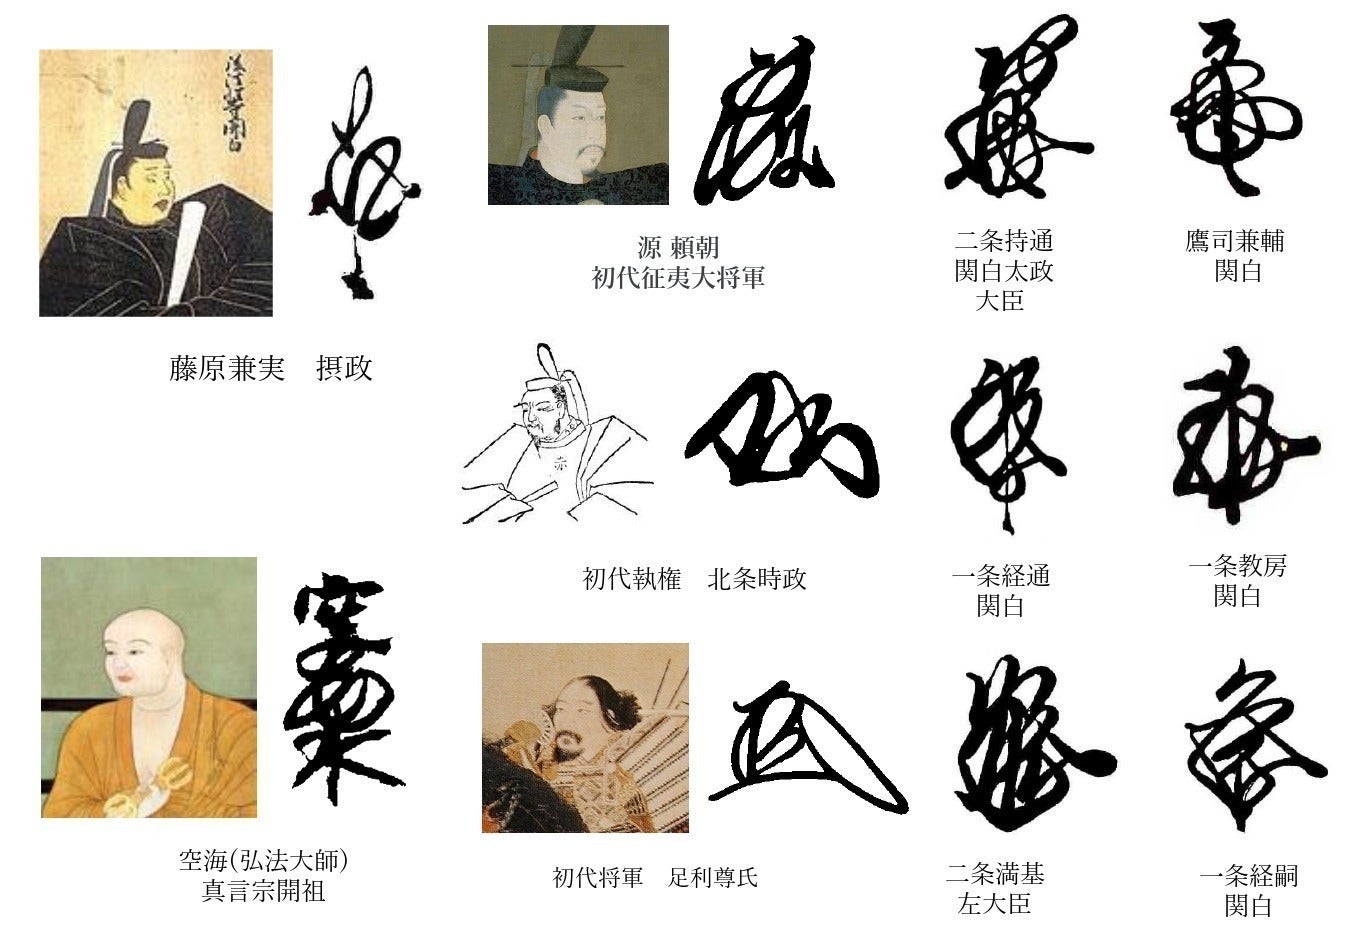 藤原兼実　摂政
空海(弘法大師)
真言宗開祖
源 頼朝
初代征夷大将軍
初代執権　北条時政
赤
初代将軍　足利尊氏
二条持通
関白太政
大臣
鷹司兼輔
関白
一条経通
関白
一条教房
関白
二条満基
左大臣
一条経嗣
関白